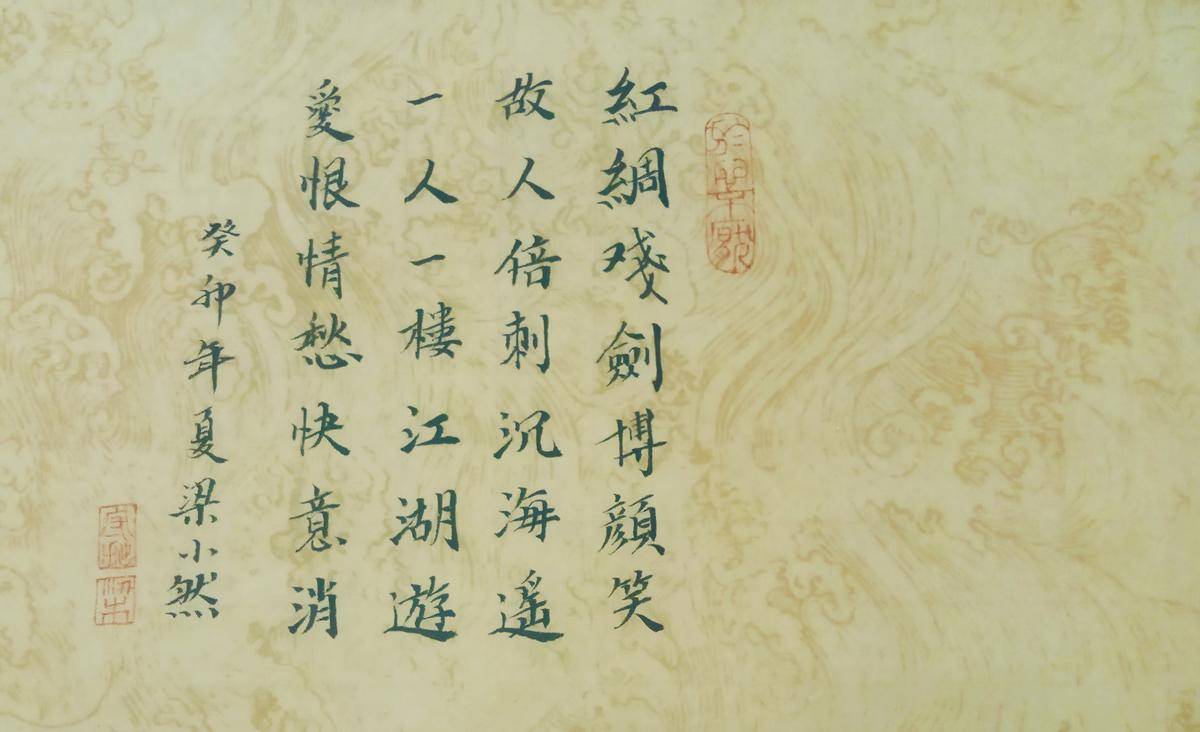 紅綢殘劍博顏笑
故人倍刺沉海遥
一人一樓江湖遊
愛恨情愁快意消
癸卯年夏梁小然